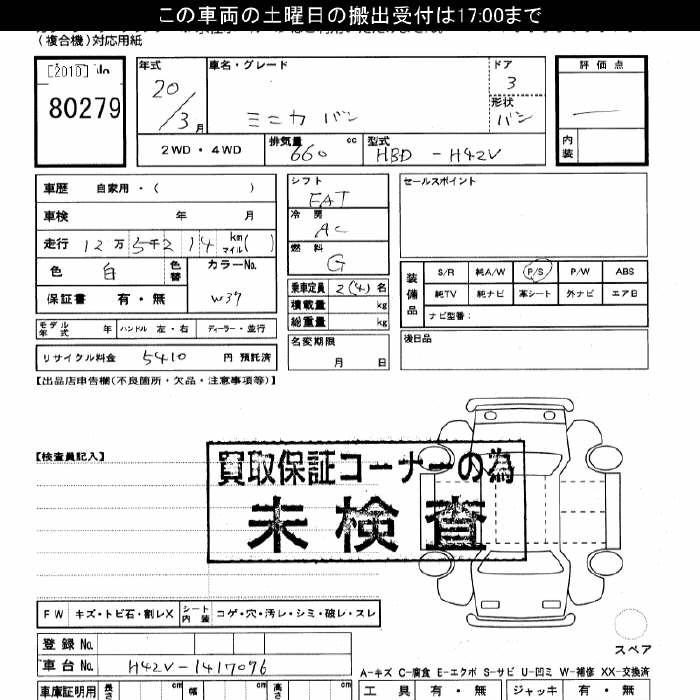 この車両の土曜日の搬出受付は17:00まで
(複合機)対応用紙
[2010]
80279
年式
20/3月
車名・グレード
ミニカ バン
ドア
3
形状
バン
評価点
内装
2WD・4WD
排気量
660 cc
型式
HBD - H42V
車歴 自家用・( )
車検 年 月
走行 12万5千214 km マイル( )
色 白 色替
カラーNo.
W37
保証書 有・無
モデル年式 年 ハンドル 左・右 ディーラー・並行
リサイクル料金 5410 円 預託済
シフト
FAT
冷房
AC
燃料
G
乗車定員 2(4) 名
積載量 kg
総重量 kg
名変期限
月 日
セールスポイント
装備品
S/R 純A/W P/S P/W ABS
純TV 純ナビ 革シート 外ナビ エアB
ナビ型番:
後日品
【出品店申告欄(不良箇所・欠品・注意事項等)】
【検査員記入】
買取保証コーナーの為
未検査
FW キズ・トビ石・割レX シート内装 コゲ・穴・汚レ・シミ・破レ・スレ
登録No.
車台No. H42V-1417096
スペア
A-キズ C-腐食 E-エクボ S-サビ U-凹ミ W-補修 XX-交換済
車庫証明用 長さ cm 幅 cm 高さ cm
工具 有・無 ジャッキ 有・無